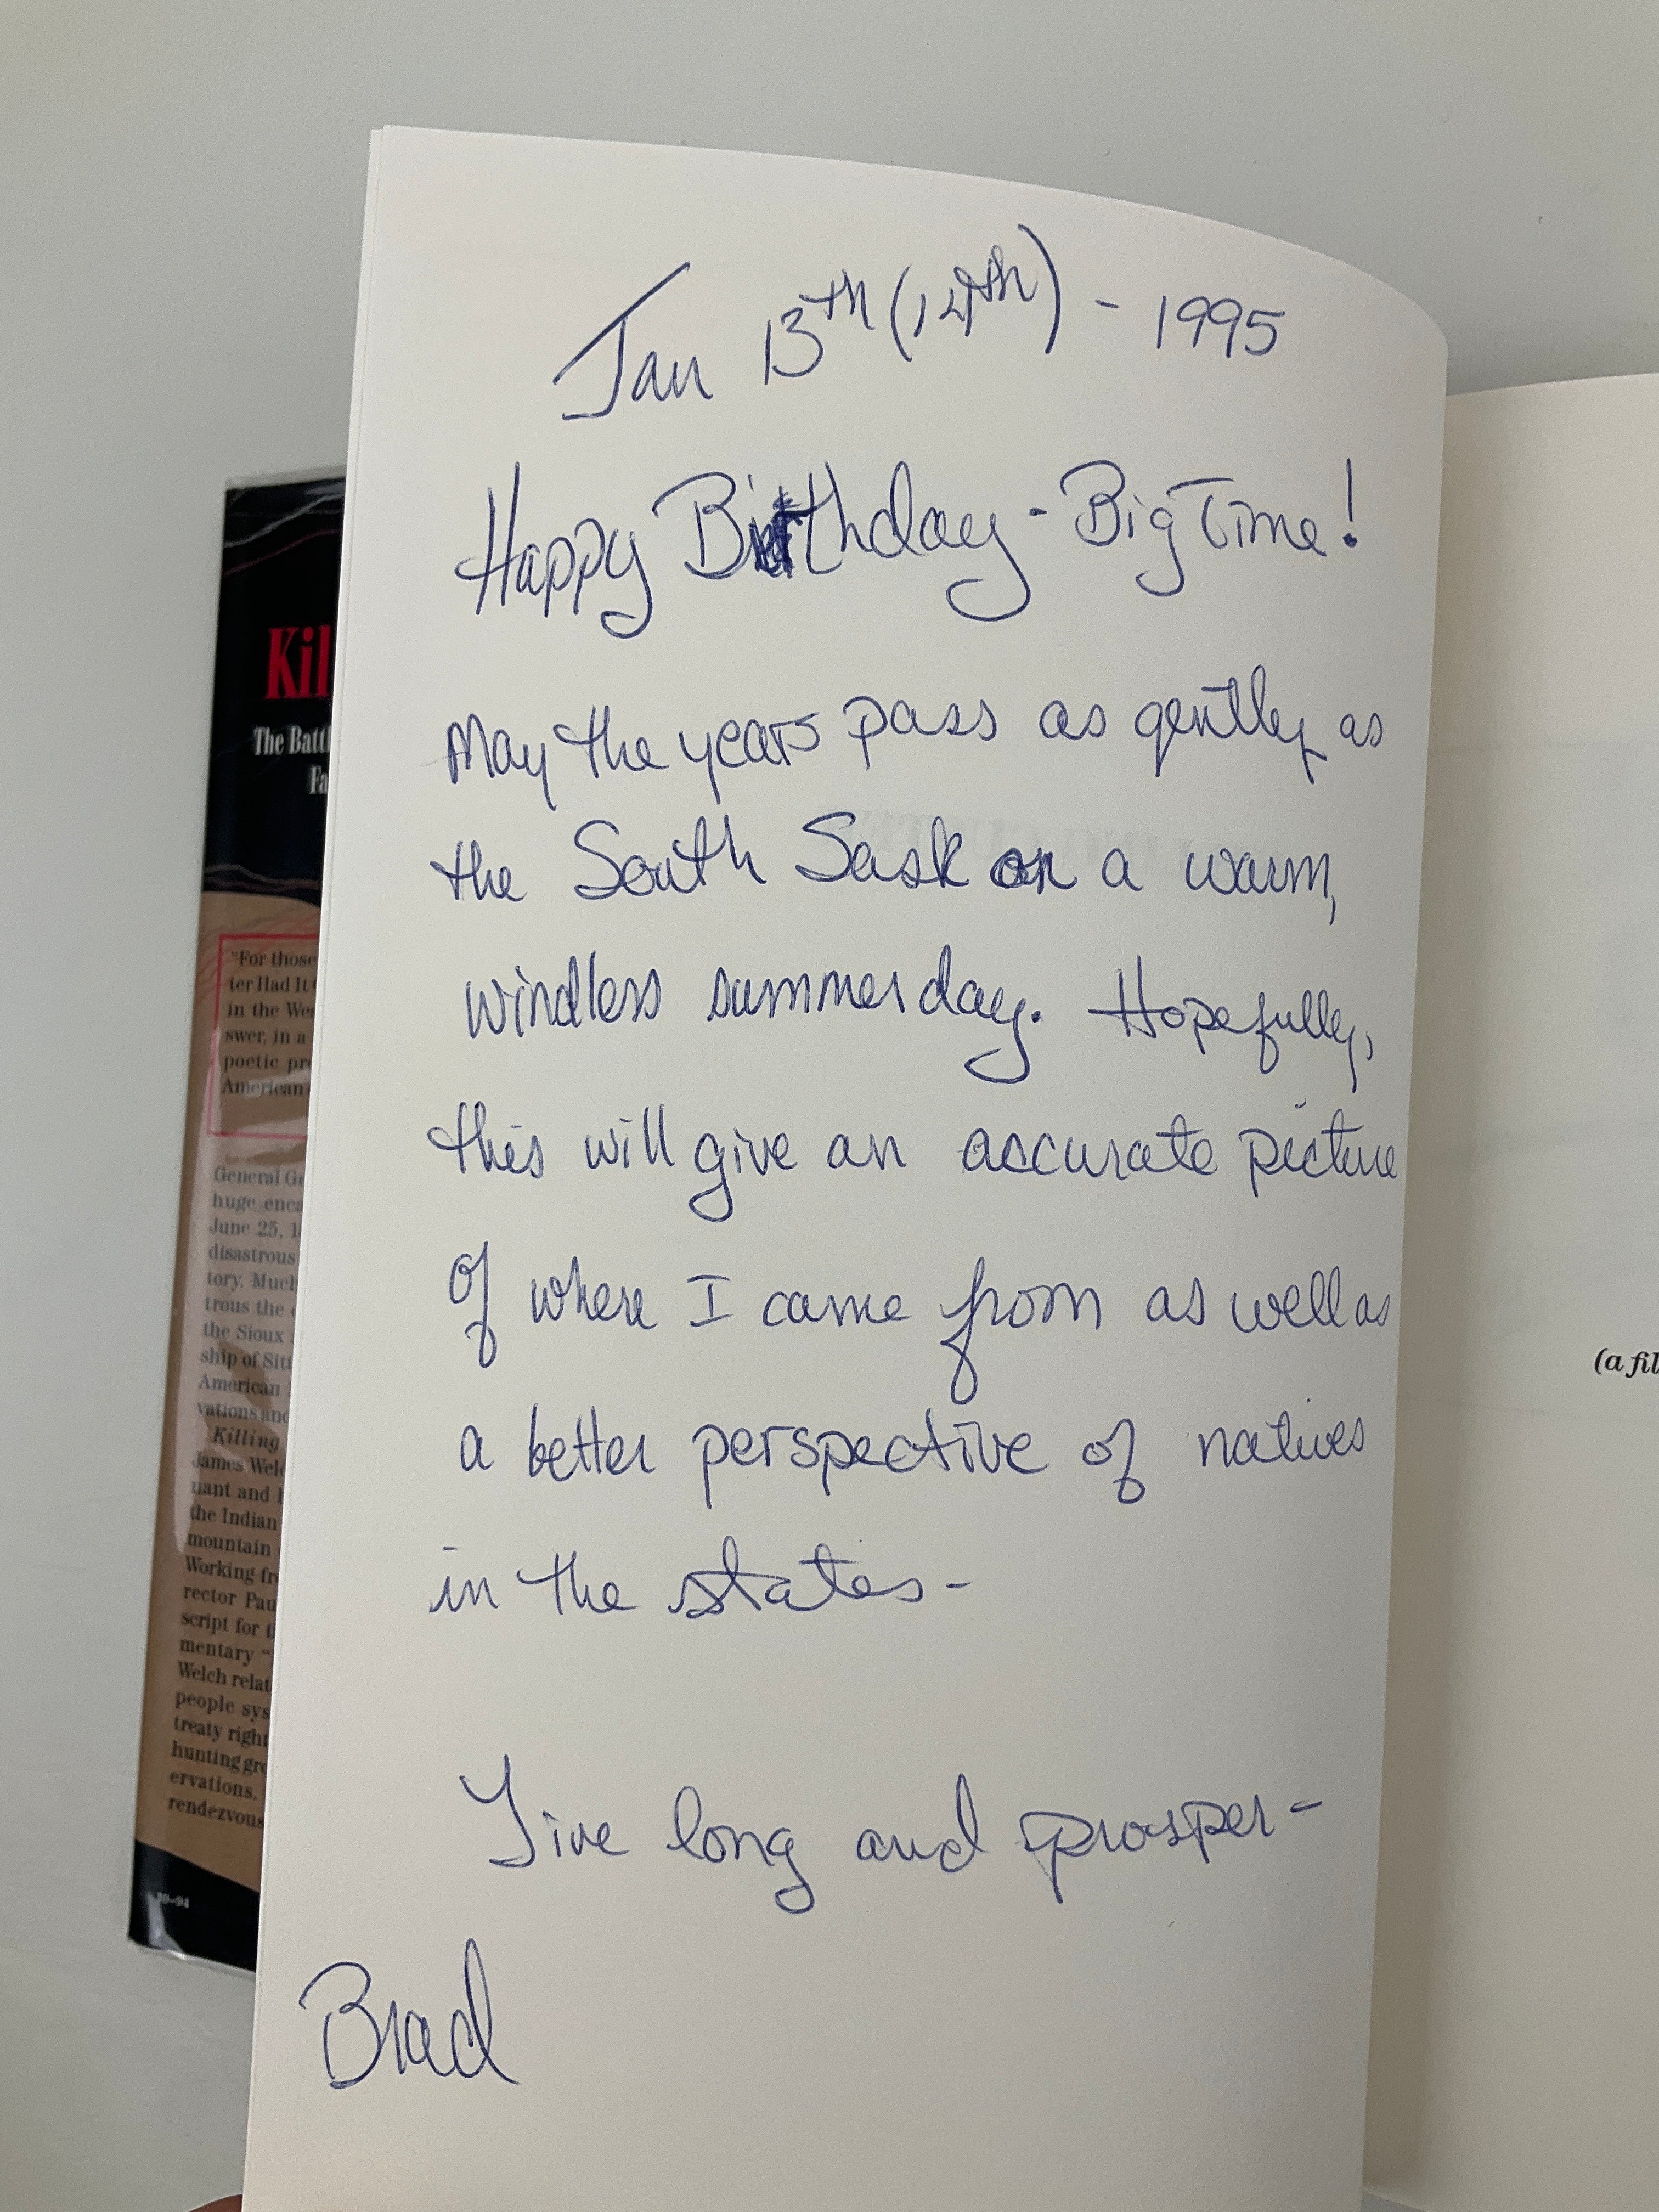 Jan 13th (14th) - 1995
Happy Birthday - Big Time!
May the years pass as gently as
the South Sask on a warm,
windless summer day. Hopefully,
this will give an accurate picture
of where I came from as well as
a better perspective of natives
in the states-
Live long and prosper-
Brad
Kil
The Battl
Fa
"For those
ter Had It
in the We
swer, in a
poetic pr
American
General Ge
huge enca
June 25, 1
disastrous
tory. Much
trous the
the Sioux
ship of Sitt
American
vations and
Killing
James Welc
nant and
the Indian
mountain
Working fr
rector Pau
script for t
mentary "
Welch relat
people sys
treaty right
hunting gro
ervations.
rendezvous
(a fil